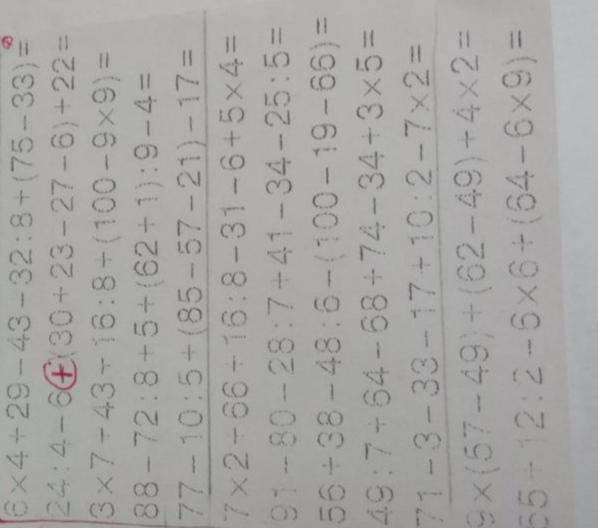 6×4+29−43−32:8+(75−33)=
24:4−6+(30+23−27−6)+22=
3×7+43+16:8+(100−9×9)=
88−72:8+5+(62+1):9−4=
77−10:5+(85−57−21)−17=
7×2+66+16:8−31−6+5×4=
91−80−28:7+41−34−25:5=
56+38−48:6−(100−19−66)=
49:7+64−68+74−34+3×5=
71−3−33−17+10:2−7×2=
9×(57−49)+(62−49)+4×2=
5+12:2−5×6+(64−6×9)=